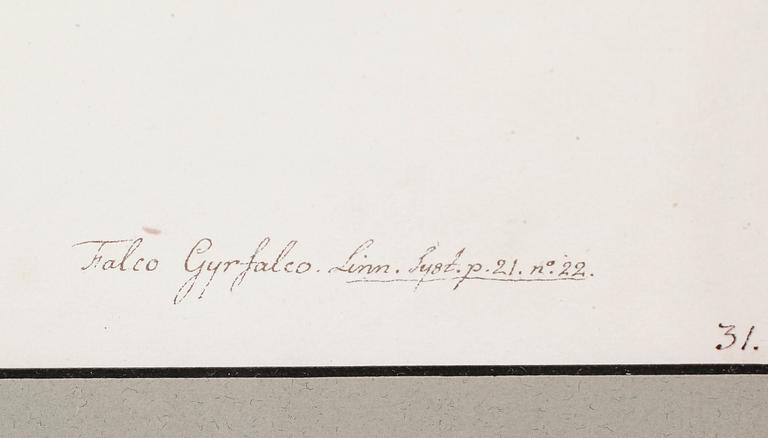 Falco Gyrfalco. Linn. Syst. p. 21. no. 22.
31.